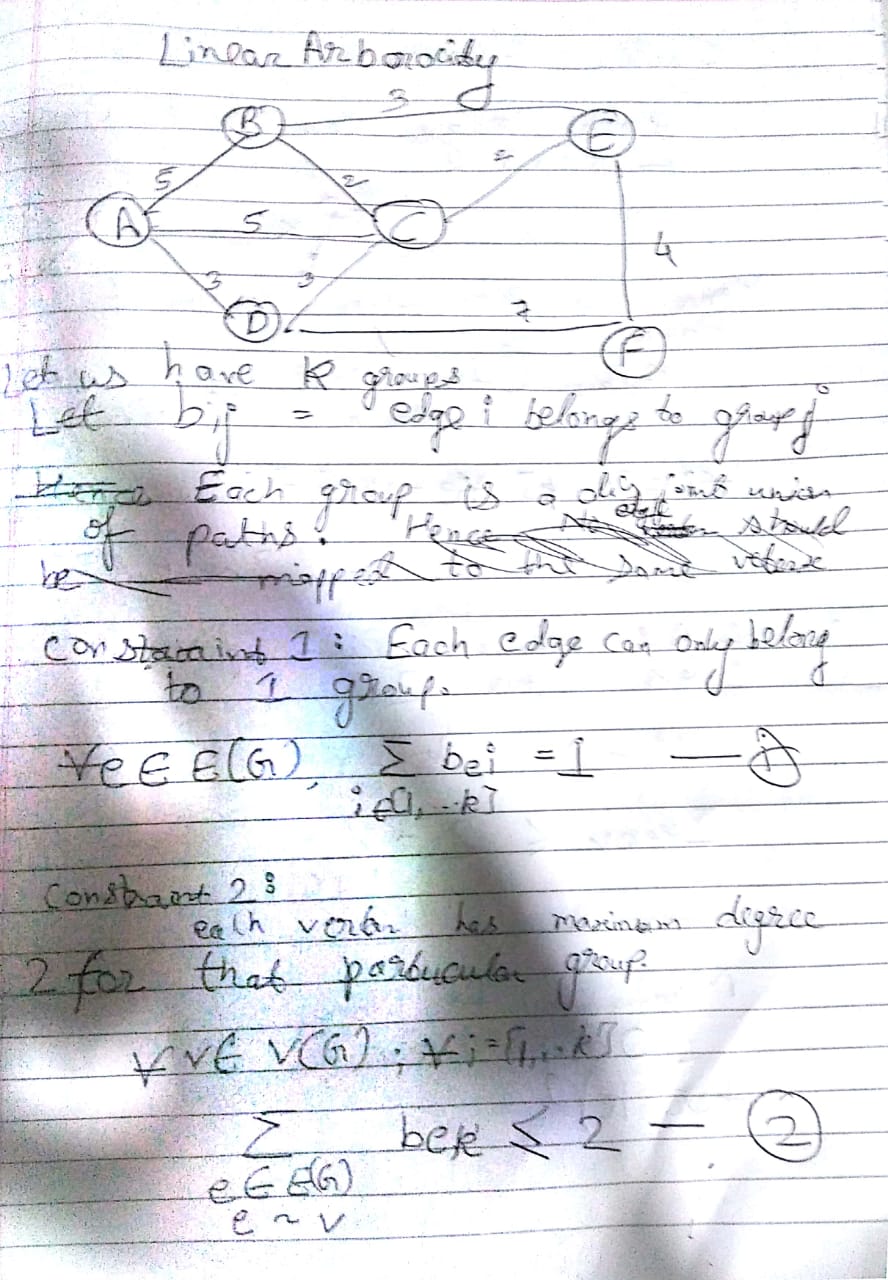 Linear Arborocity
3
B E
5 2 2
A 5 C
4
3 3
D 7
F
Let us have k groups
Let bij = edge i belongs to group j
Hence Each group is a disjoint union
of paths. Hence No edge should
be mapped to the same vertex
Constraint 1: Each edge can only belong
to 1 group.
∀e ∈ E(G), Σ bei = 1 — 1
i ∈ [1, ..k]
Constraint 2:
each vertex has maximum degree
2 for that particular group.
∀ v ∈ V(G) ; ∀ i = [1, .. k]
Σ bek ≤ 2 — 2
e ∈ E(G)
e ~ v